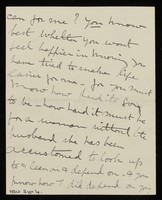 can for me? You know
best whether you want
feel happier in knowing you
have tried to make life
easier for me – for you must
know how hard it is going
to be – how hard it must be
for a woman without the
husband she has been
accustomed to look up
to & lean on & depend on – & you
know how I did depend on you